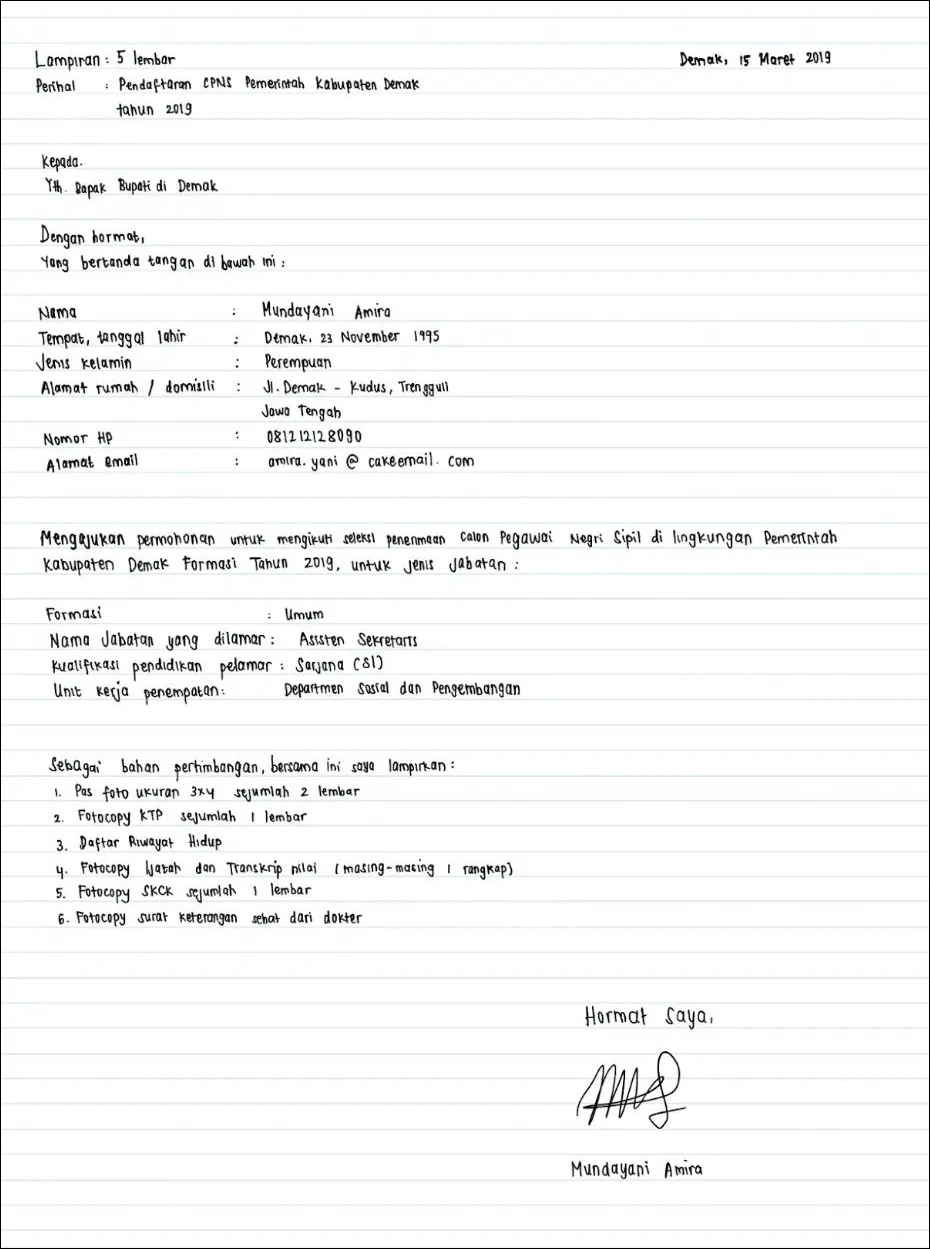 Lampiran : 5 lembar
Demak, 15 Maret 2019
Perihal : Pendaftaran CPNS Pemerintah Kabupaten Demak
tahun 2019
Kepada.
Yth. Bapak Bupati di Demak
Dengan hormat,
Yang bertanda tangan di bawah ini :
Nama : Mundayani Amira
Tempat, tanggal lahir : Demak, 23 November 1995
Jenis kelamin : Perempuan
Alamat rumah / domisili : Jl. Demak - Kudus, Trengguli
Jawa Tengah
Nomor HP : 081212128090
Alamat email : amira.yani @ cakeemail. com
Mengajukan permohonan untuk mengikuti seleksi penerimaan Calon Pegawai Negri Sipil di lingkungan Pemerintah
Kabupaten Demak Formasi Tahun 2019, untuk jenis jabatan :
Formasi : Umum
Nama Jabatan yang dilamar : Asisten Sekretaris
Kualifikasi pendidikan pelamar : Sarjana (S1)
Unit kerja penempatan : Departmen Sosial dan Pengembangan
Sebagai bahan pertimbangan, bersama ini saya lampirkan :
1. Pas foto ukuran 3x4 sejumlah 2 lembar
2. Fotocopy KTP sejumlah 1 lembar
3. Daftar Riwayat Hidup
4. Fotocopy Ijazah dan Transkrip nilai (masing-masing 1 rangkap)
5. Fotocopy SKCK sejumlah 1 lembar
6. Fotocopy surat keterangan sehat dari dokter
Hormat Saya,
Mundayani Amira